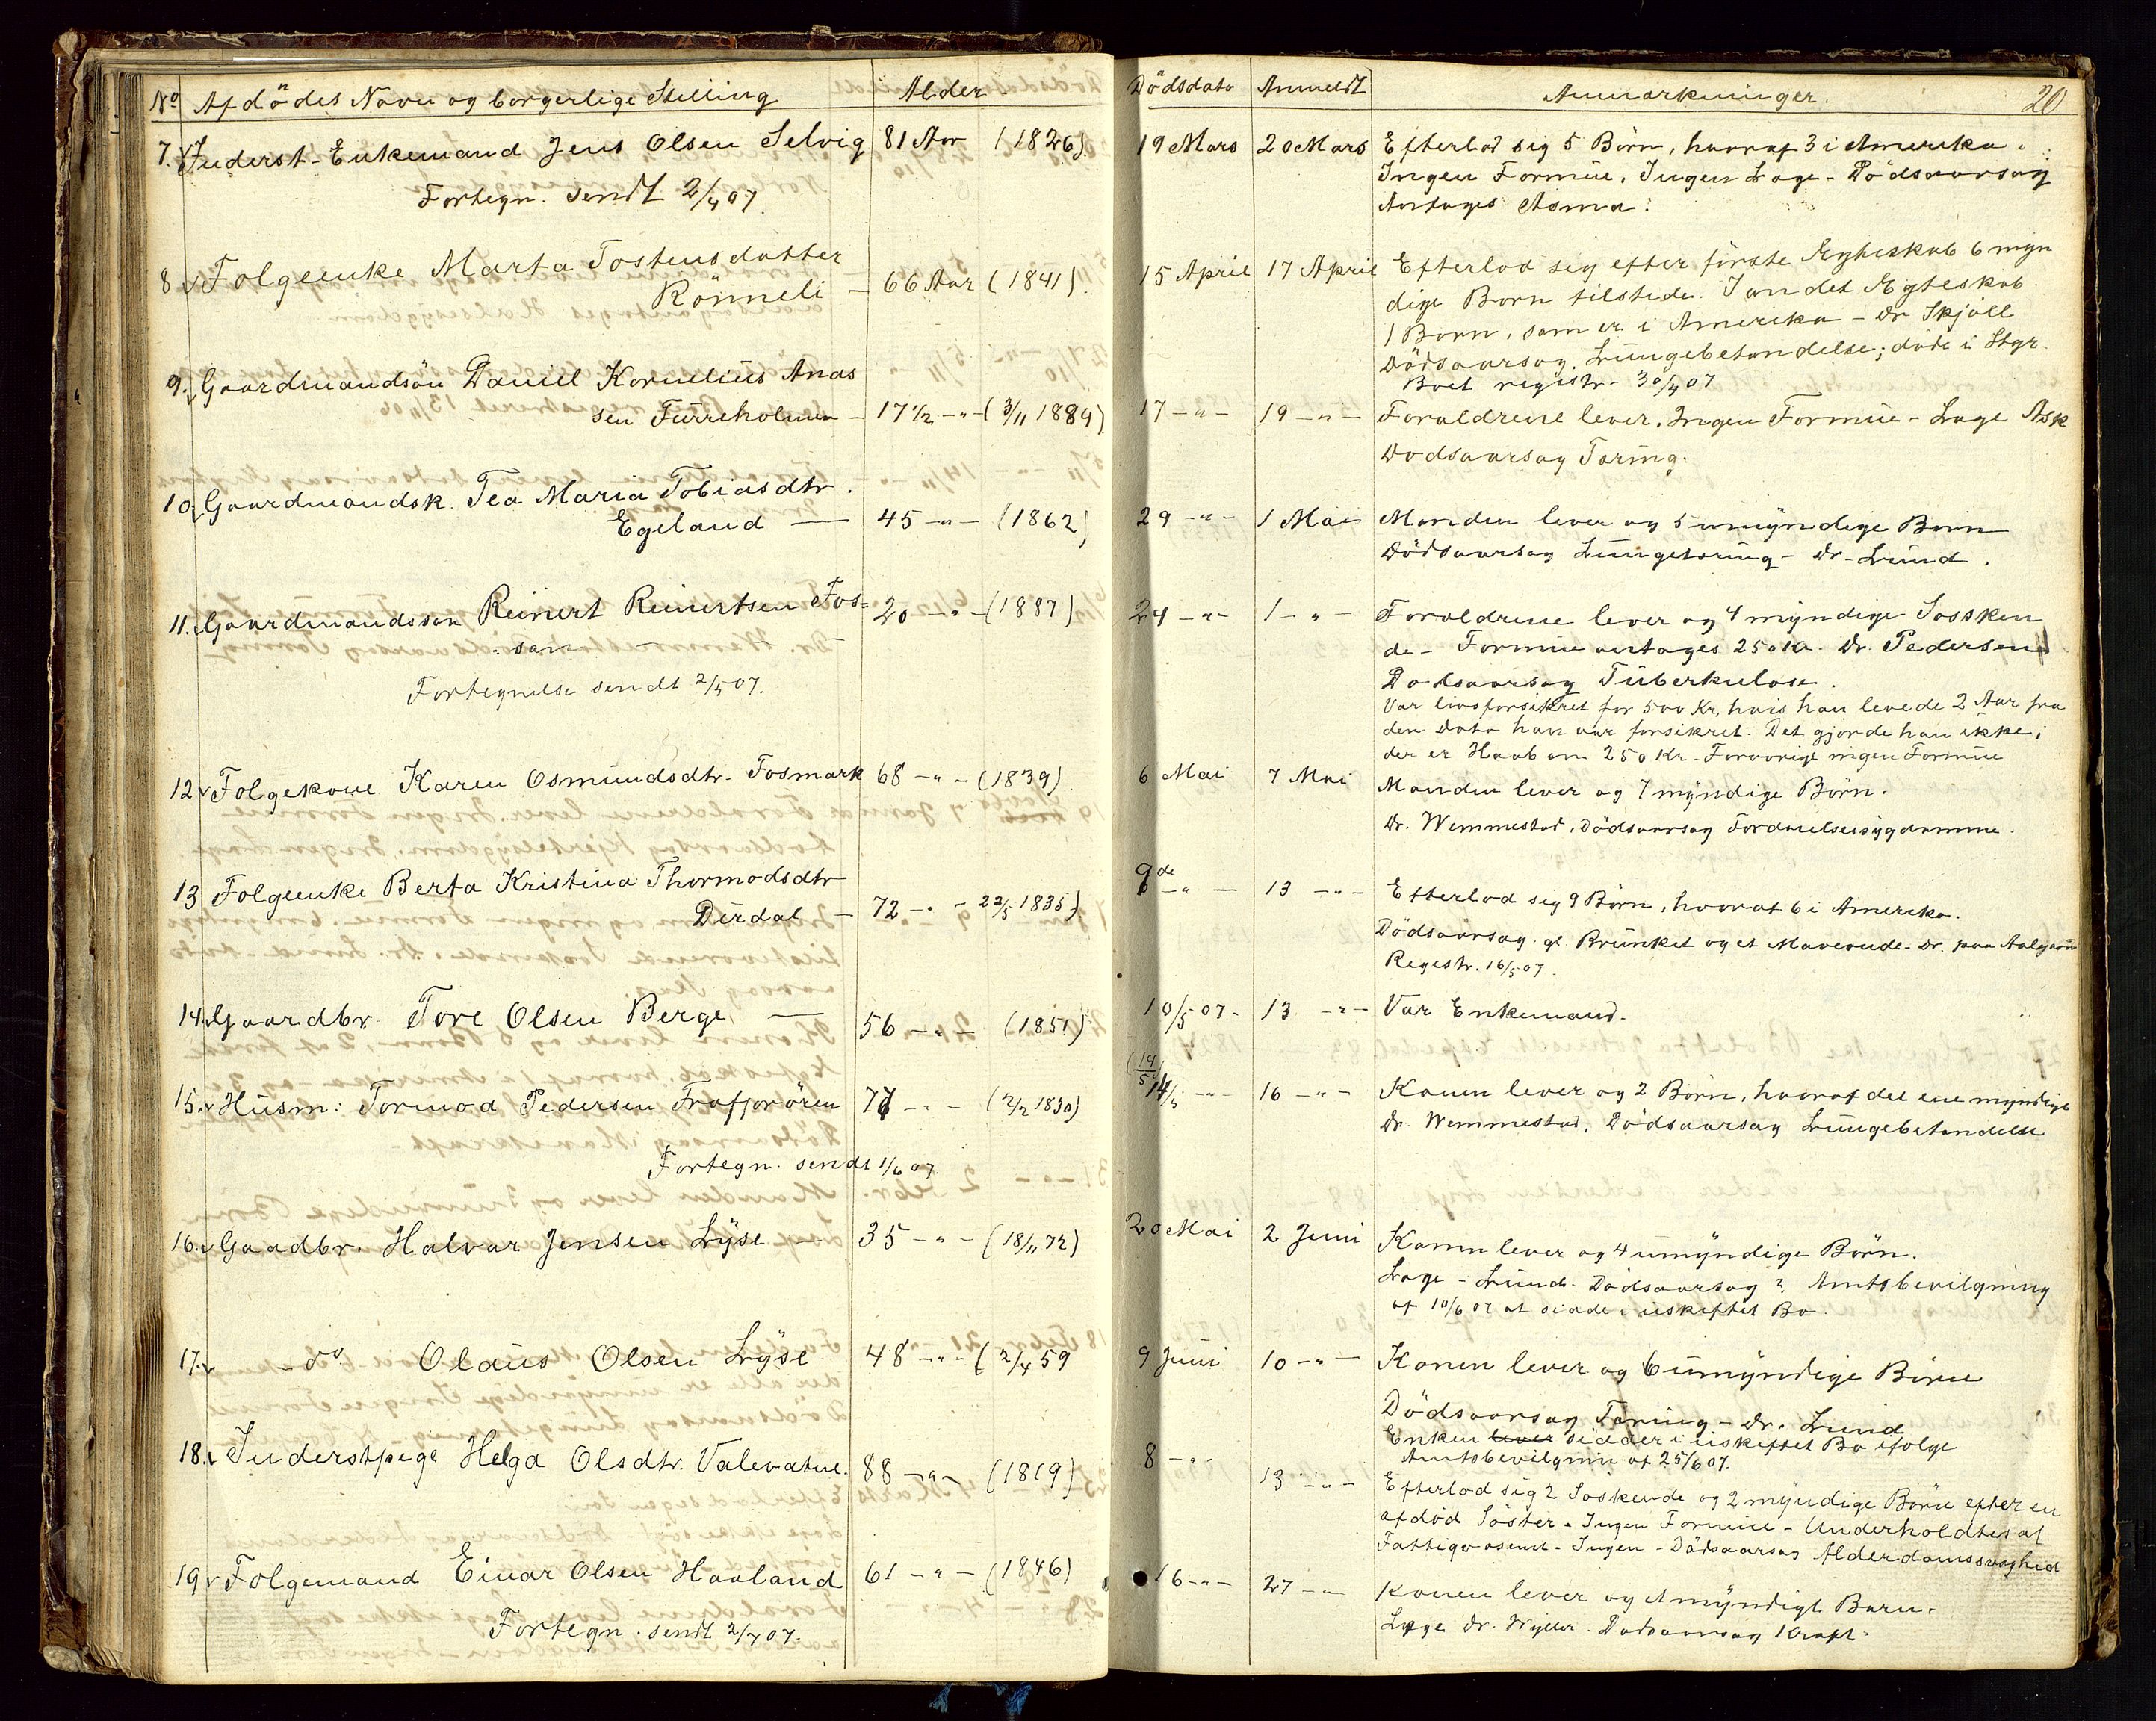 No Afdödes Navn og borgerlige Stilling Alder. Dödsdato Anmeldt Anmærkninger. 20
7. Inderst-Enkemand Jens Olsen Selvig 81 Aar (1826). 19 Mars 20 Mars Efterlod sig 5 Börn, hvoraf 3 i Amerika.
Ingen Formue. Ingen Læge - Dödsaarsag
Fortegn. sendt 2/4 07.
Antages Asma.
8 Folgeenke Marta Tostensdatter
Rönneli — 66 Aar (1841). 15 April 17 April Efterlod sig efter förste Ægteskab 6 myn
dige Born tilstede. I andet Ægteskab
1 Barn, som er i Amerika - Dr Skjöll
Dödsaarsag. Lungebetændelse; döde i Styr.
Boet registr. 30/4 07
9. Gaardmandsön Daniel Kornelius Andas
sen Furreholmen — 17 1/2 -"- (3/11 1889) 17 -"- 19 -"- Forældrene lever. Ingen Formue - Læge Ask
Dodsaarsag Tæring.
10. Gaardmandsk. Tea Maria Tobiasdtr.
Egeland — 45 -"- (1862) 29 -"- 1 Mai Manden lever og 5 umyndige Börn
Dödsaarsag Lungetæring - Dr. Lund.
11. Gaardmandssön Reinert Reinertsen Fos=
san 20 -"- (1887) 24 -"- 1 -"- Forældrene lever og 4 myndige Sossken
de - Formue antages 250 Kr. Dr. Pedersen
Fortegnelse sendt 2/5 07.
Dodsaarsag Tuberkulose.
Var livsforsikret for 500 Kr, hvis han levede 2 Aar fra
den Dato han var forsikret. Det gjorde han ikke;
der er Haab om 250 Kr. Forovrige ingen Formue
12 Folgekone Karen Osmundsdtr. Fosmark 68 -"- (1839) 6 Mai 7 Mai Manden lever og 7 myndige Börn.
Dr. Wemmestad, Dödsaarsag Fordøielsessygdomme.
13 Folgeenke Berta Kristina Thormodsdtr
Dirdal — 72 -"- 22/5 1835). 9de -"- 13 -"- Efterlod sig 9 Börn, hvoraf 6 i Amerika.
Dödsaarsag. gl. Brunket og et Maveonde - Dr. paa Aalgaard
Registr. 16/5 07.
14. Gaardbr. Tore Olsen Berge — 56 -"- (1851) 10/5 07. 13 -"- Var Enkemand.
15. Husm: Tormod Pedersen Frafjorören 77 -"- (2/2 1830) (14/5) 14/5 -"- 16 -"- Konen lever og 2 Börn, hvoraf det ene myndigt
Dr. Wemmestad, Dödsaarsag Lungebetændelse
Fortegn. sendt 1/6 07.
16. Gaadbr. Halvar Jensen Lyse — 35 -"- (18/11 72) 20 Mai 2 Juni Konen lever og 4 umyndige Börn.
Læge - Lund. Dödsaarsag? Amtsbevilgning
af 10/6 07 at sidde i uskiftet Bo.
17. - do Olaus Olsen Lyse 48 -"- (2/4 59 9 Juni 10 -"- Konen lever og 6 umyndige Börn
Dödsaarsag Tæring - Dr. Lund
Enken lever sidder i uskiftet Bo ifolge
Amtsbevilgnin af 25/6 07.
18. Inderstpige Helga Olsdtr. Valevatne. 88 -"- (1819) 8 -"- 13 -"- Efterlod sig 2 Söskende og 2 myndige Börn efter en
afdöd Söster - Ingen Formue - Underholdtes af
Fattigvæsenet - Ingen - Dödsaarsag Alderdomssvaghed
19 Folgemand Einar Olsen Haaland 61 -"- (1846) 16 -"- 27 -"- Konen lever og et myndigt Barn.
Læge Dr. Wyller. Dødsaarsag Kræft.
Fortegn. sendt 2/7 07.